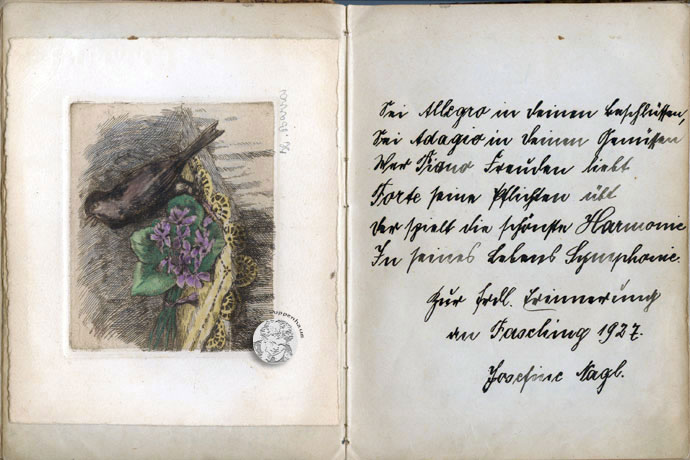 Sei Allegro in deinen Beschlüssen,
Sei Adagio in deinen Genüssen
Wer Piano Freuden liebt
Forte seine Pflichten übt
Der spielt die schönste Harmonie
In seines Lebens Symphonie.
Zur frdl. Erinnerung
an Fasching 1927.
Josefine Nagl.
ppenhaus